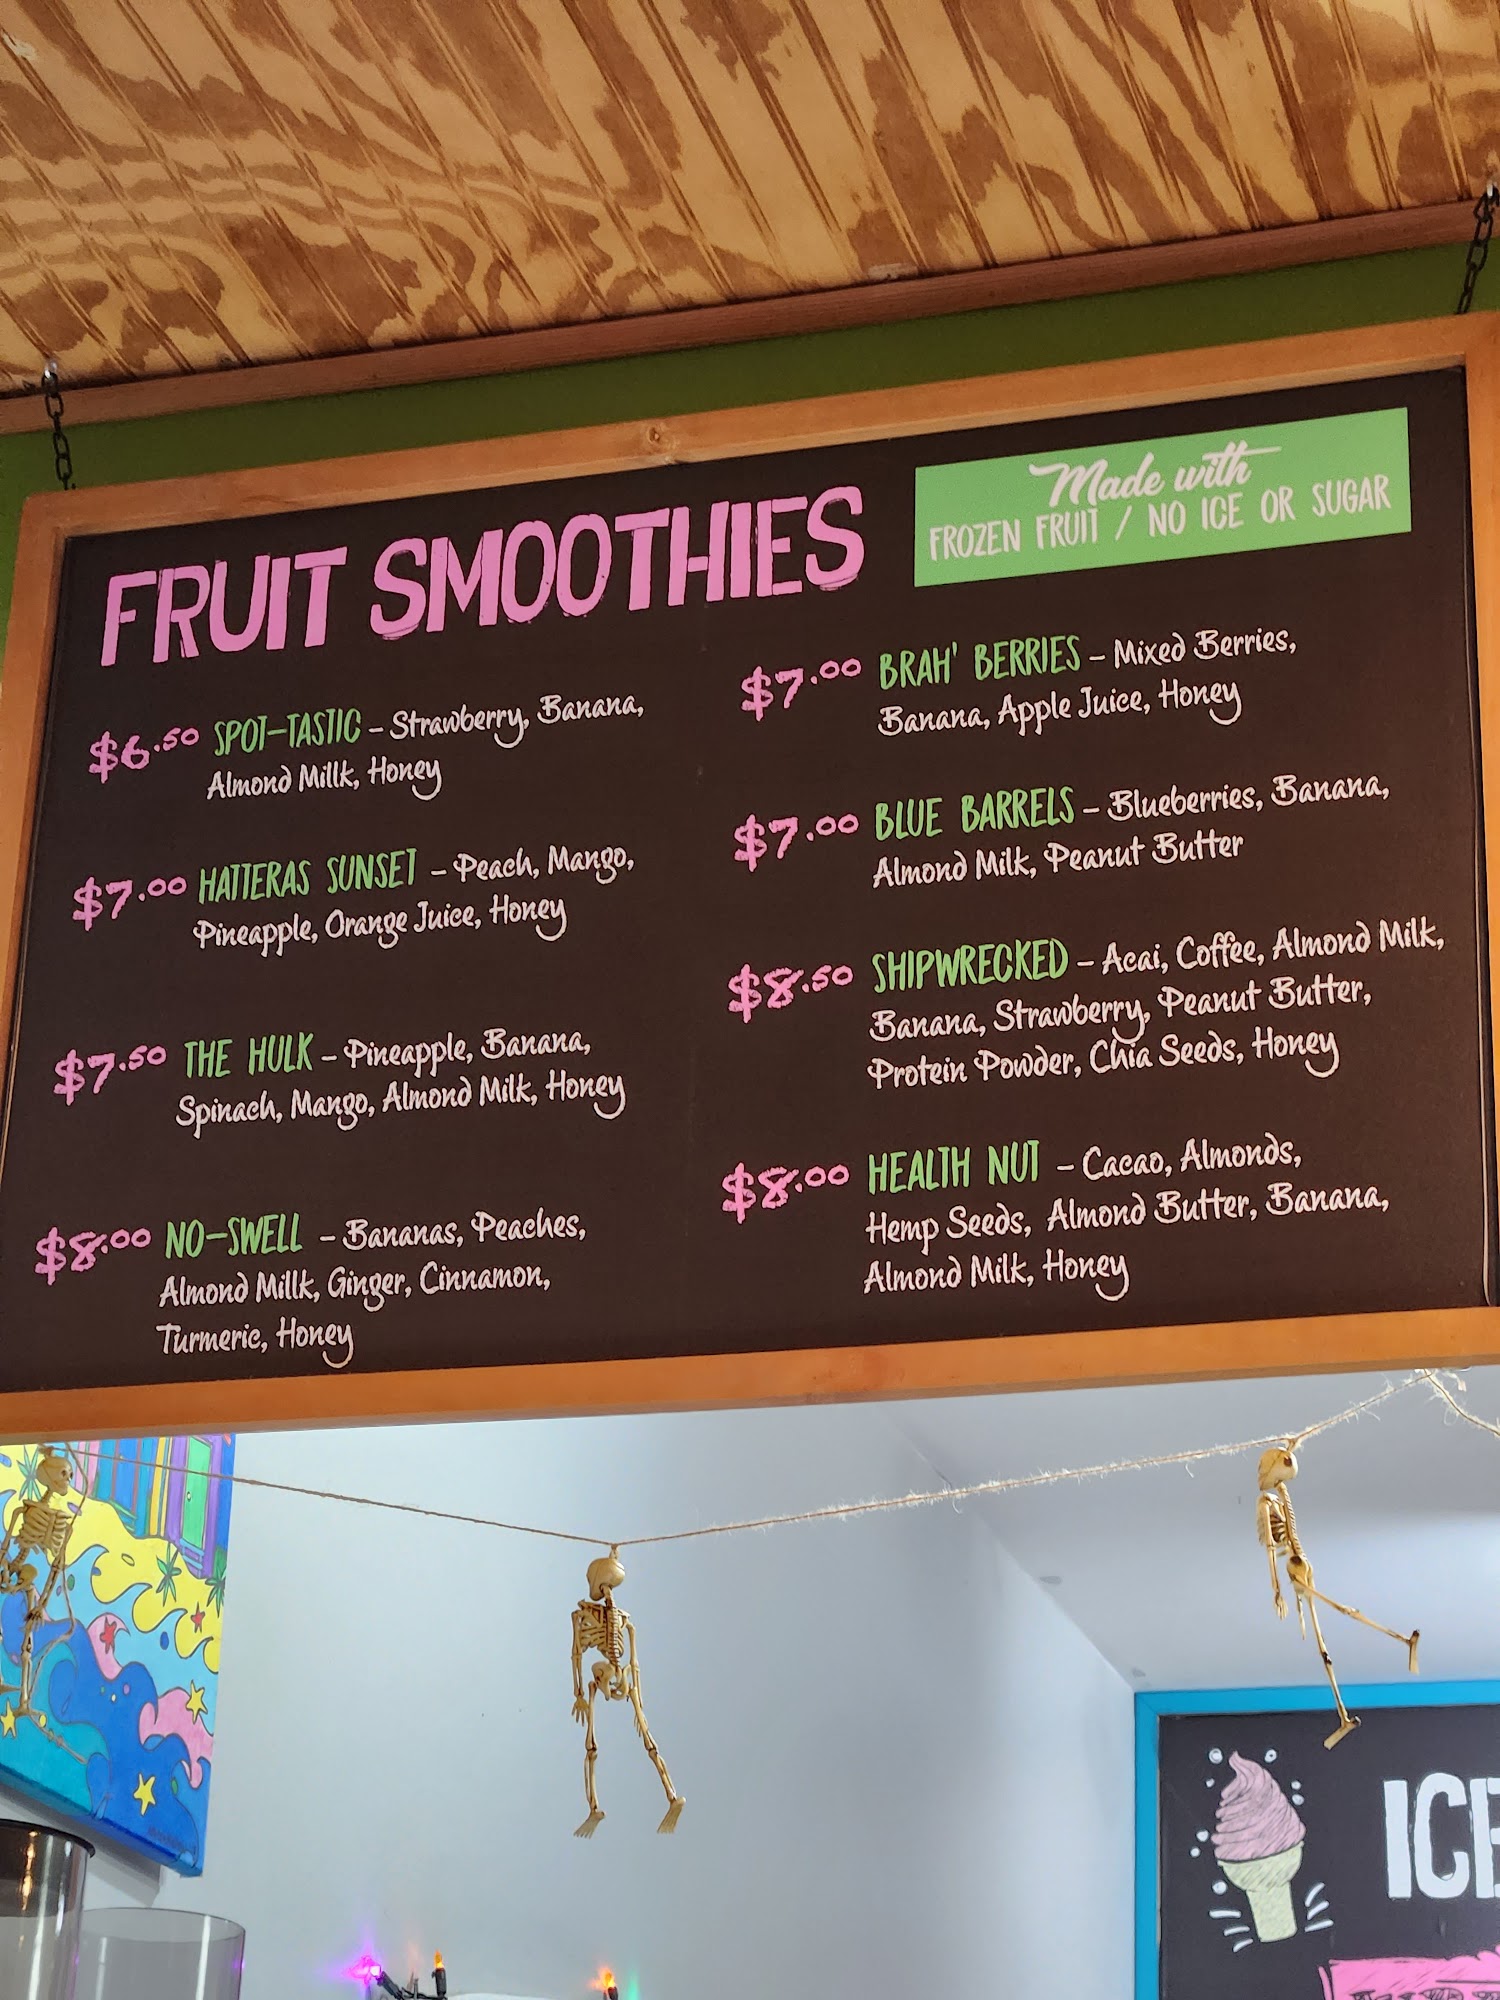 FRUIT SMOOTHIES
Made with
FROZEN FRUIT / NO ICE OR SUGAR
$6.50 SPOT-TASTIC – Strawberry, Banana,
Almond Millk, Honey
$7.00 HATTERAS SUNSET – Peach, Mango,
Pineapple, Orange Juice, Honey
$7.50 THE HULK – Pineapple, Banana,
Spinach, Mango, Almond Milk, Honey
$8.00 NO-SWELL – Bananas, Peaches,
Almond Millk, Ginger, Cinnamon,
Turmeric, Honey
$7.00 BRAH' BERRIES – Mixed Berries,
Banana, Apple Juice, Honey
$7.00 BLUE BARRELS – Blueberries, Banana,
Almond Milk, Peanut Butter
$8.50 SHIPWRECKED – Acai, Coffee, Almond Milk,
Banana, Strawberry, Peanut Butter,
Protein Powder, Chia Seeds, Honey
$8.00 HEALTH NUT – Cacao, Almonds,
Hemp Seeds, Almond Butter, Banana,
Almond Milk, Honey
ICE